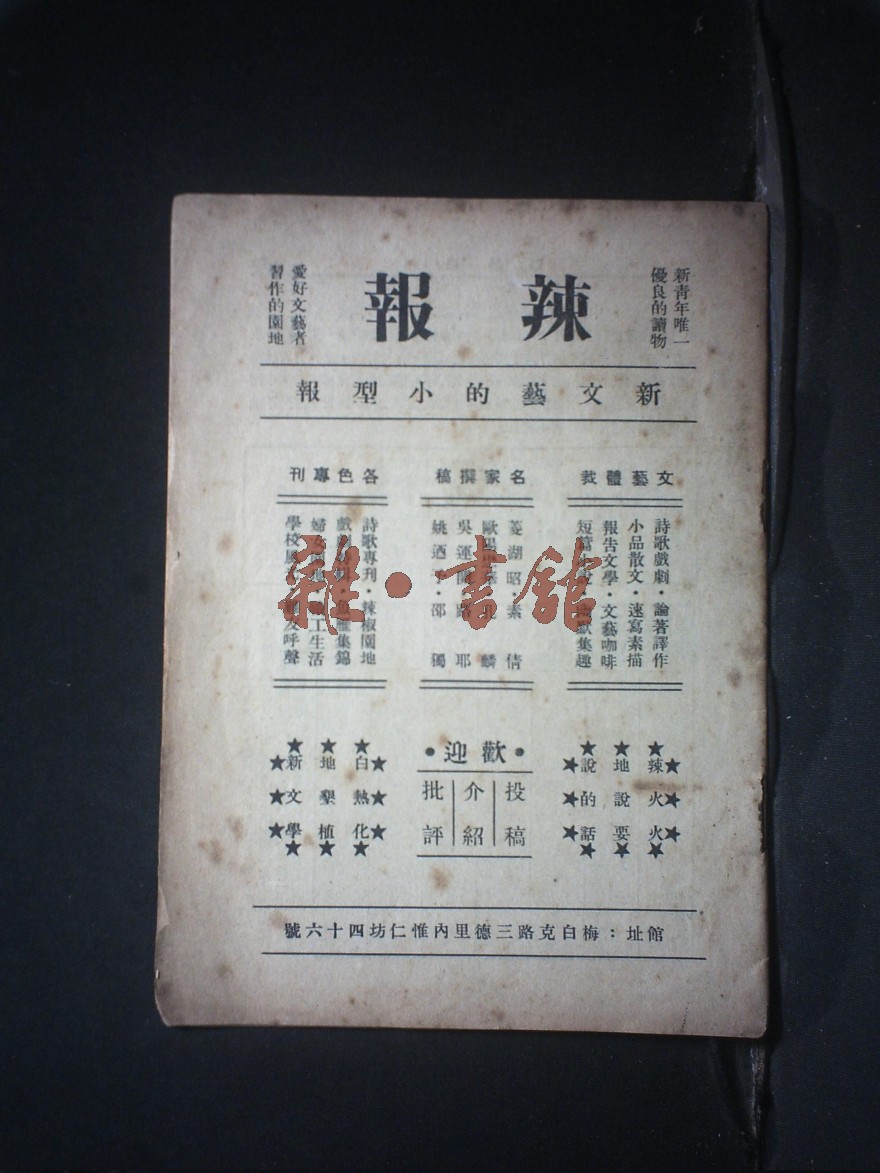 新青年唯一
優良的讀物
辣報
愛好文藝者
習作的園地
新文藝的小型報
文藝體裁
詩歌戲劇・論著譯作
小品散文・速寫素描
報告文學・文藝咖啡
短篇 集趣
名家撰稿
菱湖昭・素倩
歐陽 麟
吳運 路耶
姚迺 ・邵獨
各色專刊
詩歌專刊・辣椒園地
戲劇 集錦
婦女 工生活
學校 呼聲
・歡迎・
投稿
介紹
批評
★辣火火★
★地說要★
★說的話★
★白熱化★
★地墾植★
★新文學★
館址：梅白克路三德里內惟仁坊四十六號
雜・書館